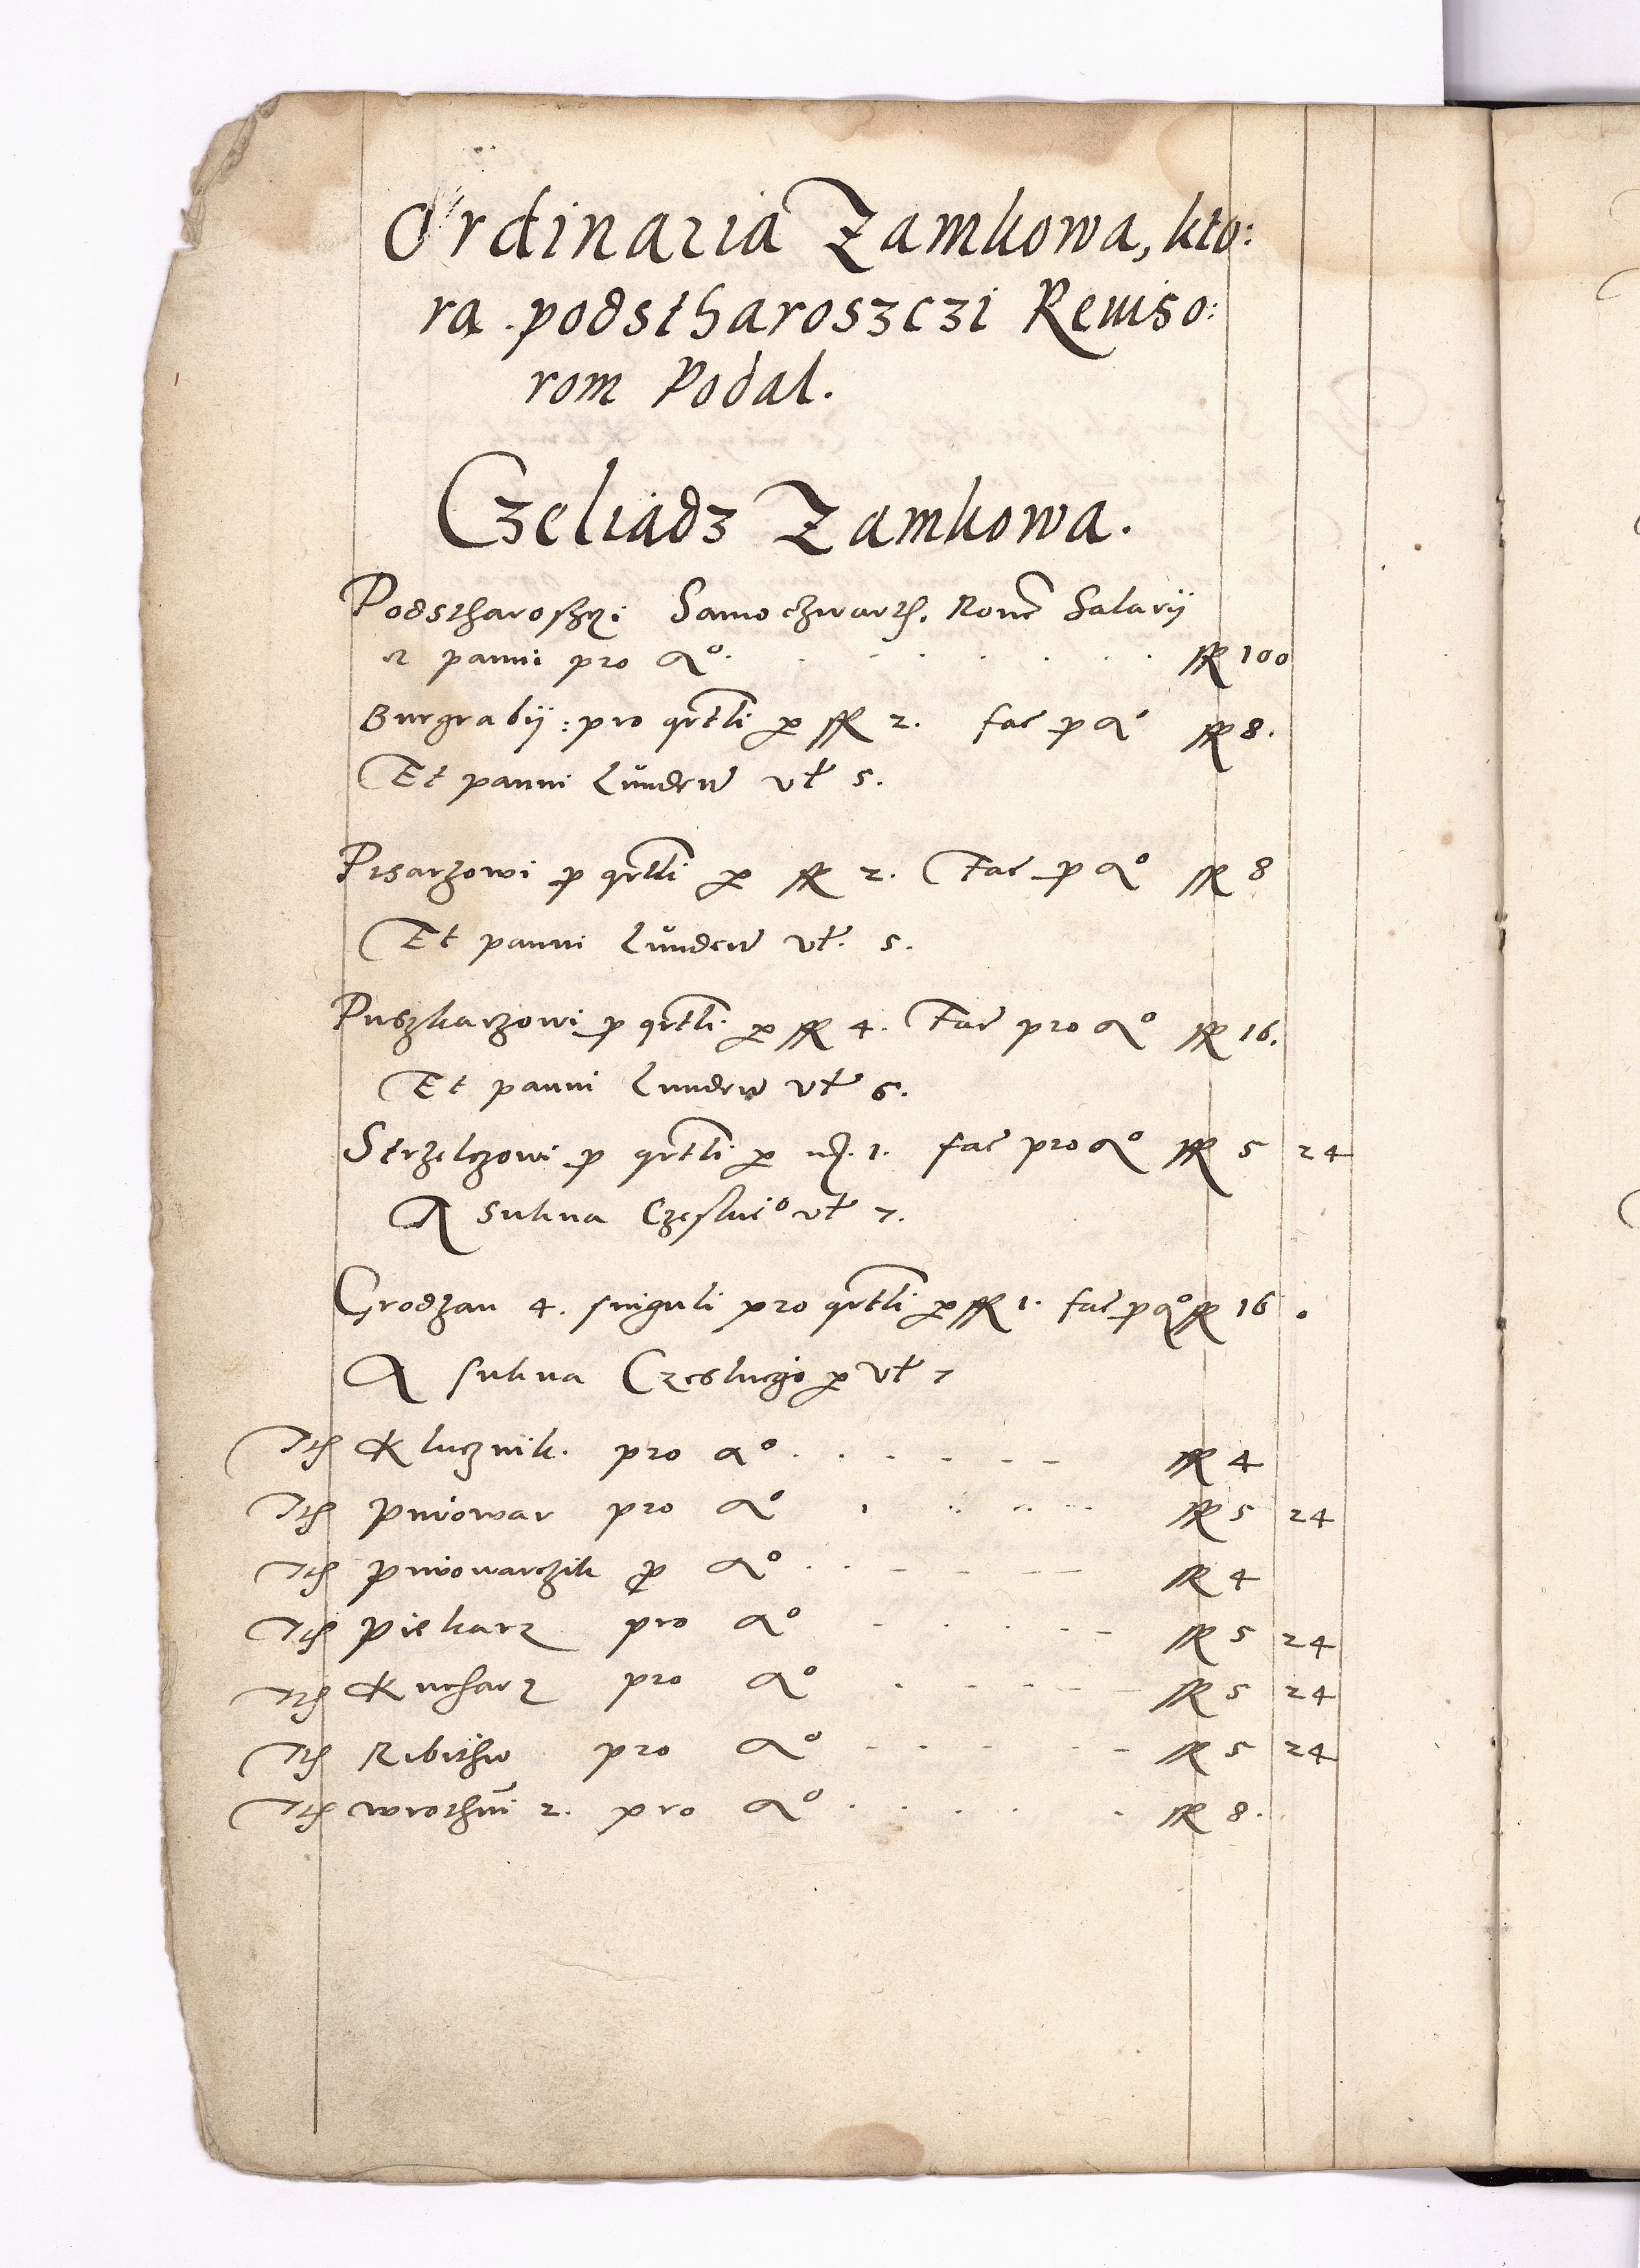 Ordinaria Zamkowa, kto:
ra podstharoszczi Reuiso:
rom Podal.
Czeliadz Zamkowa.
Podstharoszczi Samoczwarth. Salarij
et panni pro Ao. fl 100
Burgrabij: pro qrtli p fl 2. fac p Ao fl 8.
Et panni Lunden vl 5.
Pisarzowi p qrtli p fl 2. Fac p Ao fl 8
Et panni Lunden vl. 5.
Puszkarzowi p qrtli p fl 4. Fac pro Ao fl 16.
Et panni Lunden vl 6.
Strzelczowi p qrtli p 1. fac pro Ao fl 5 24
A sukna Czeskieo vl 7.
Grodzan 4. singuli pro qrtli p fl 1. fac p Ao fl 16.
A sukna Czeskiego p vl 7
Ith Klucznik. pro Ao. fl 4
Ith piwowar pro Ao fl 5 24
Ith piwowarczik p Ao fl 4
Ith piekarz pro Ao fl 5 24
Ith Kucharz pro Ao fl 5 24
Ith Ribithw pro Ao fl 5 24
Ith wrothni 2. pro Ao fl 8.